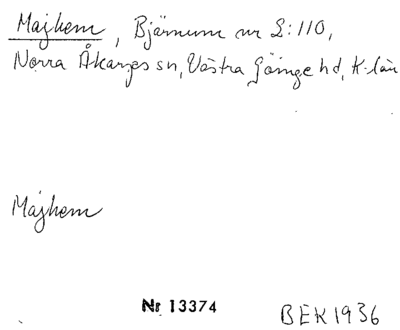 Majhem, Bjärnum nr 2:110,
Norra Åkarps sn, Västra Göinge hd, K-län
Majhem
Nr 13374
BEK 1936